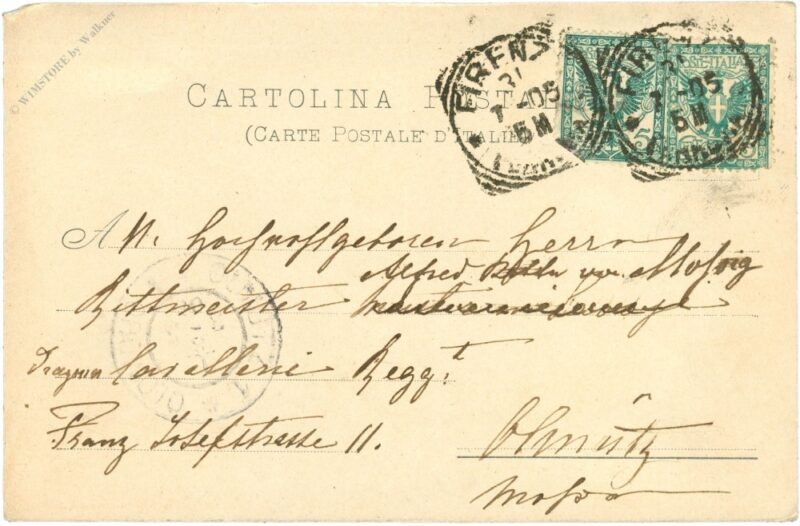 © WIMSTORE by Walkner
CARTOLINA POSTA
(CARTE POSTALE D'ITALIE
FIRENZ
31
7 -05
5 M
FIRE
31
7 -05
5 M
5
A N. Hochwohlgeboren Herrn
Alfred von
Rittmeister
Dragoner Cavallerie Reggt
Franz Josefstrasse 11.
Olmütz